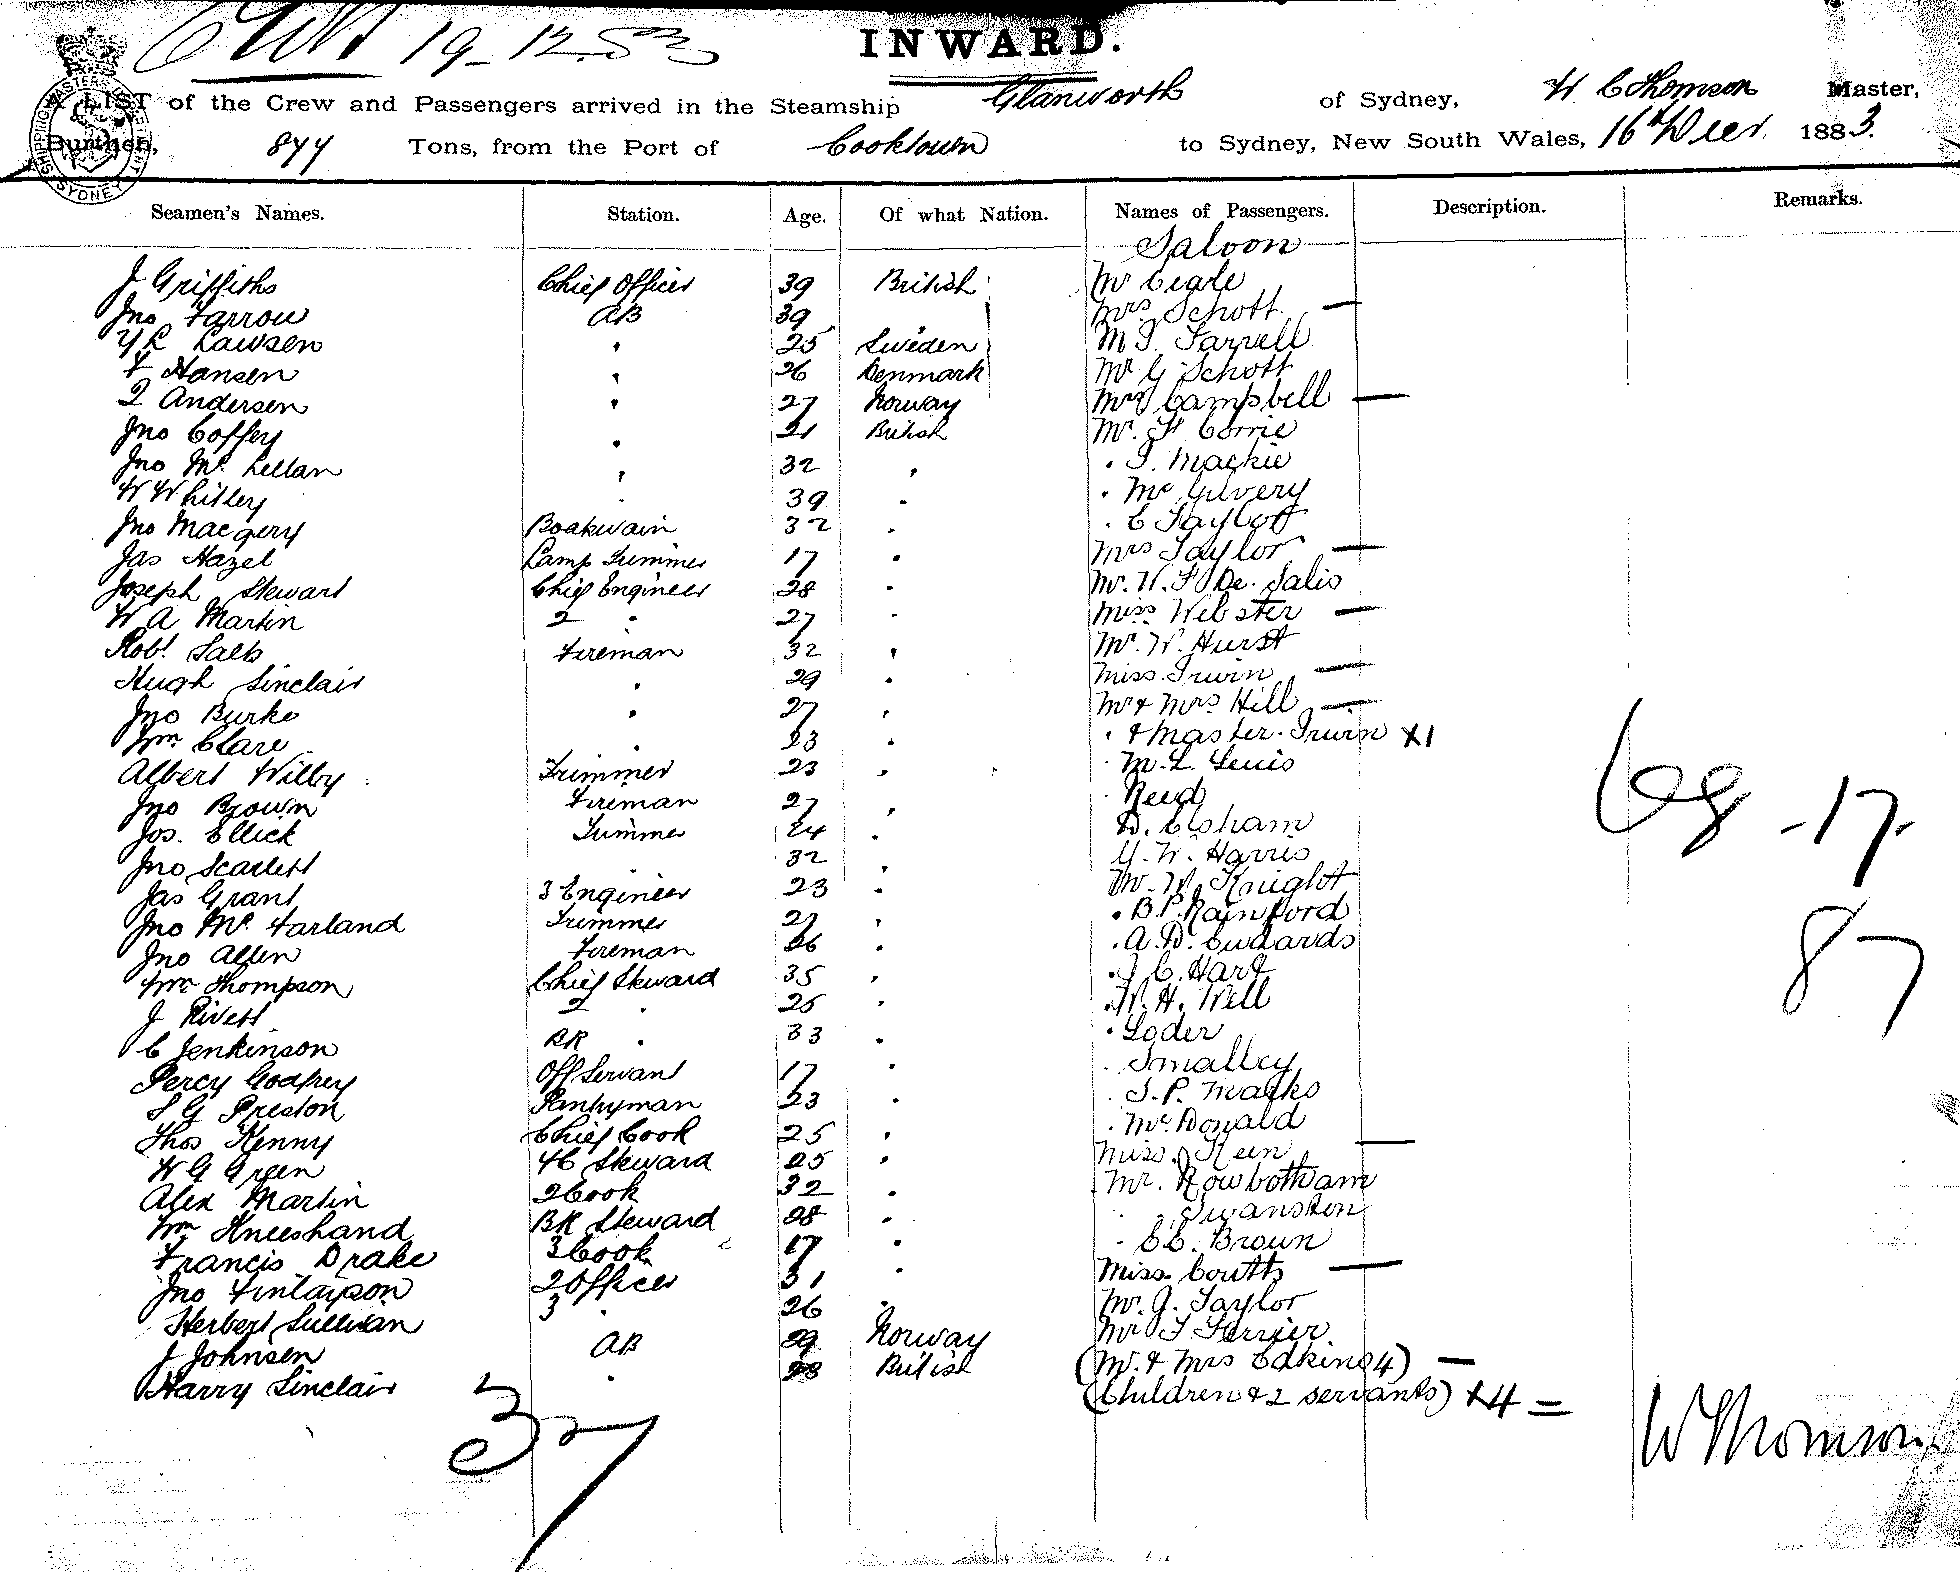 19-12-83
INWARD.
A LIST of the Crew and Passengers arrived in the Steamship Glanworth of Sydney, W C Thomson Master,
Burthen, 877 Tons, from the Port of Cooktown to Sydney, New South Wales, 16th Decr. 1883.
Seamen's Names. Station. Age. Of what Nation. Names of Passengers. Description. Remarks.
Saloon
J Griffiths Chief Officer 39 British Mr Cegle
Jno Farrow AB 39 Mrs Schott —
Lawsen " 25 Sweden M J. Farrell
F Hansen " 26 Denmark Mr G Schott
Andersen " 27 Norway Mrs Campbell —
Jno Coffey " 21 British Mr. F Corrie
Jno Mc Lellan " 32 " " J. Mackie
W Whitley " 39 " " Mc Gilvery
Jno Macgery Boatswain 32 " " C Taylor
Jas Hazel Lamp Trimmer 17 " Mrs Taylor —
Joseph Stewart Chief Engineer 28 " Mr. W. F De. Salis
W A Martin 2 " 27 " Miss Webster —
Robt Salts Fireman 32 " Mr. W. Hurst
Hugh Sinclair " 29 " Miss Irwin —
Jno Burke " 27 " Mr & Mrs Hill —
Wm Clare " 23 " & Master Irwin X1
Albert Wilby Trimmer 23 " " M. L. Lewis
Jno Brown Fireman 27 " " Reid
Jos. Ellick Trimmer 24 " D. Clsham
Jno Scarlett " 32 " G. W. Harris
Jas Grant 3 Engineer 23 " W. Knight
Jno Mc Farland Trimmer 27 " " B. P. Rainford
Jno Allen Fireman 26 " " A. D. Edwards
Wm Thompson Chief Steward 35 " " J C. Hart
J Rivett 2 " 25 " " W. H. Well
C Jenkinson BR " 33 " " Loder
Percy Godfrey Off Servant 17 " " Smalley
S G Preston Pantryman 23 " " J. P. Marks
Thos Kenny Chief Cook 25 " " McDonald
W G Green FC Steward 25 " Miss. Keen —
Alex Martin 2 Cook 32 " Mr. Rowbotham
Wm Kneeshand BR Steward 28 " " Swanston
Francis Drake 3 Cook 17 " " C. C. Brown
Jno Finlayson 2 Officer 31 " Miss. Coutts —
Herbert Sullivan 3 " 26 " Mr. G. Taylor
J Johnsen AB 29 Norway Mr J Ferrier
Harry Sinclair " 28 British (Mr. & Mrs Edkins 4) —
(Children & 2 servants) X4 =
37
-17.
87
W Thomson